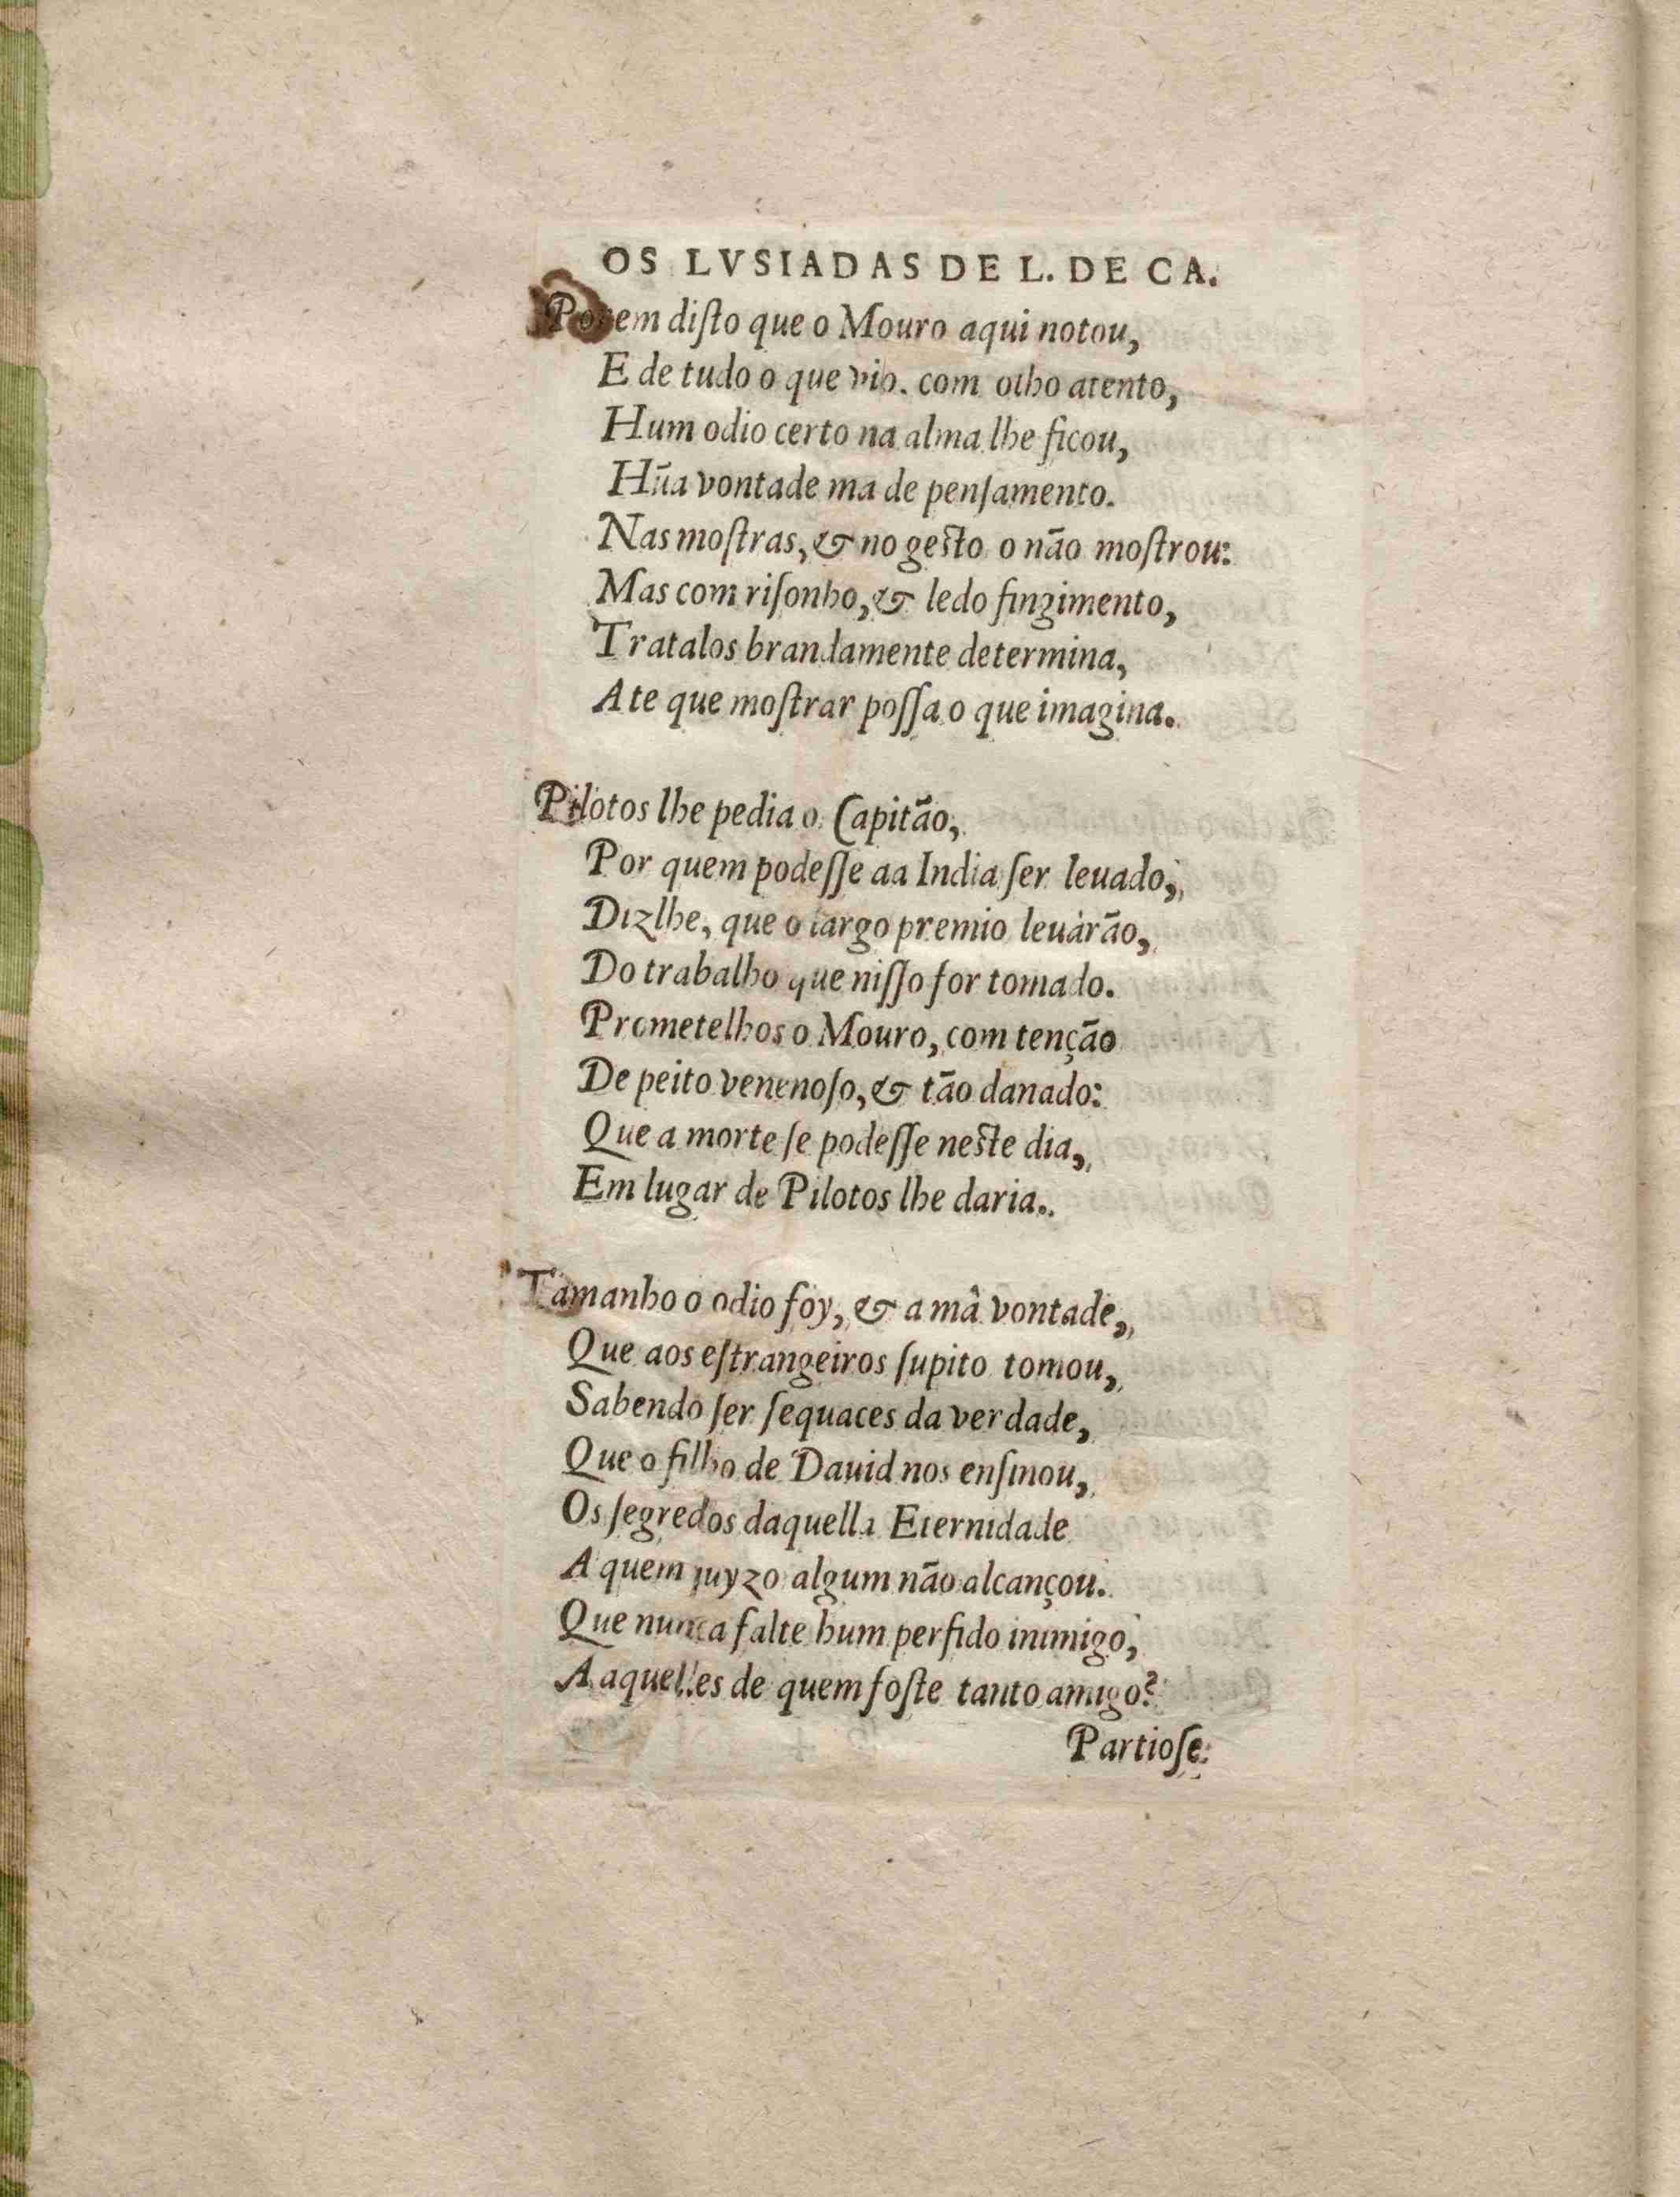 OS LVSIADAS DE L. DE CA.
Porem diſto que o Mouro aqui notou,
E de tudo o que vio. com olho atento,
Hum odio certo na alma lhe ficou,
Hũa vontade ma de penſamento.
Nas moſtras, & no geſto o não moſtrou:
Mas com riſonho, & ledo fingimento,
Tratalos brandamente determina,
Ate que moſtrar poſſa o que imagina.
Pilotos lhe pedia o Capitão,
Por quem podeſſe aa India ſer leuado,
Dizlhe, que o largo premio leuàrão,
Do trabalho que niſſo for tomado.
Prometelhos o Mouro, com tenção
De peito venenoſo, & tão danado:
Que a morte ſe podeſſe neſte dia,
Em lugar de Pilotos lhe daria.
Tamanho o odio foy, & a mâ vontade,
Que aos eſtrangeiros ſupito tomou,
Sabendo ſer ſequaces da verdade,
Que o filho de Dauid nos enſinou,
Os ſegredos daquella Eternidade
A quem juyzo algum não alcançou.
Que nunca falte hum perfido inimigo,
A aquelles de quem foſte tanto amigo?
Partioſe